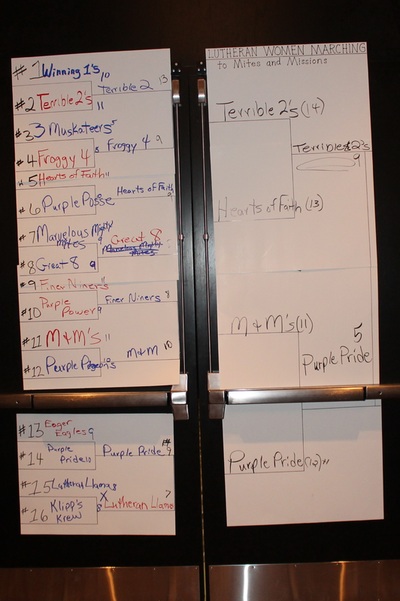 #1 Winning 1's 10
Terrible 2 13
#2 Terrible 2's 11
#3 3 Musketeers 5
Froggy 4 9
#4 Froggy 4 8
#5 Hearts of Faith 11
Hearts of Faith
#6 Purple Posse
#7 Marvelous Mighty Mites 9
Great 8
#8 Great 8 9
#9 Finer Niners
Finer Niners 8
#10 Purple Power 9
#11 M & M's 11
M & M 10
#12 Purple
#13 Eager Eagles 9
Purple Pride 9
#14 Purple Pride 10
#15 Lutheran Llamas
Lutheran Llama 7
#16 Klipp's Krew
LUTHERAN WOMEN MARCHING
to Mites and Missions
Terrible 2's (14)
Terrible 2's
9
Hearts of Faith (13)
M & M's (11)
5
Purple Pride
Purple Pride